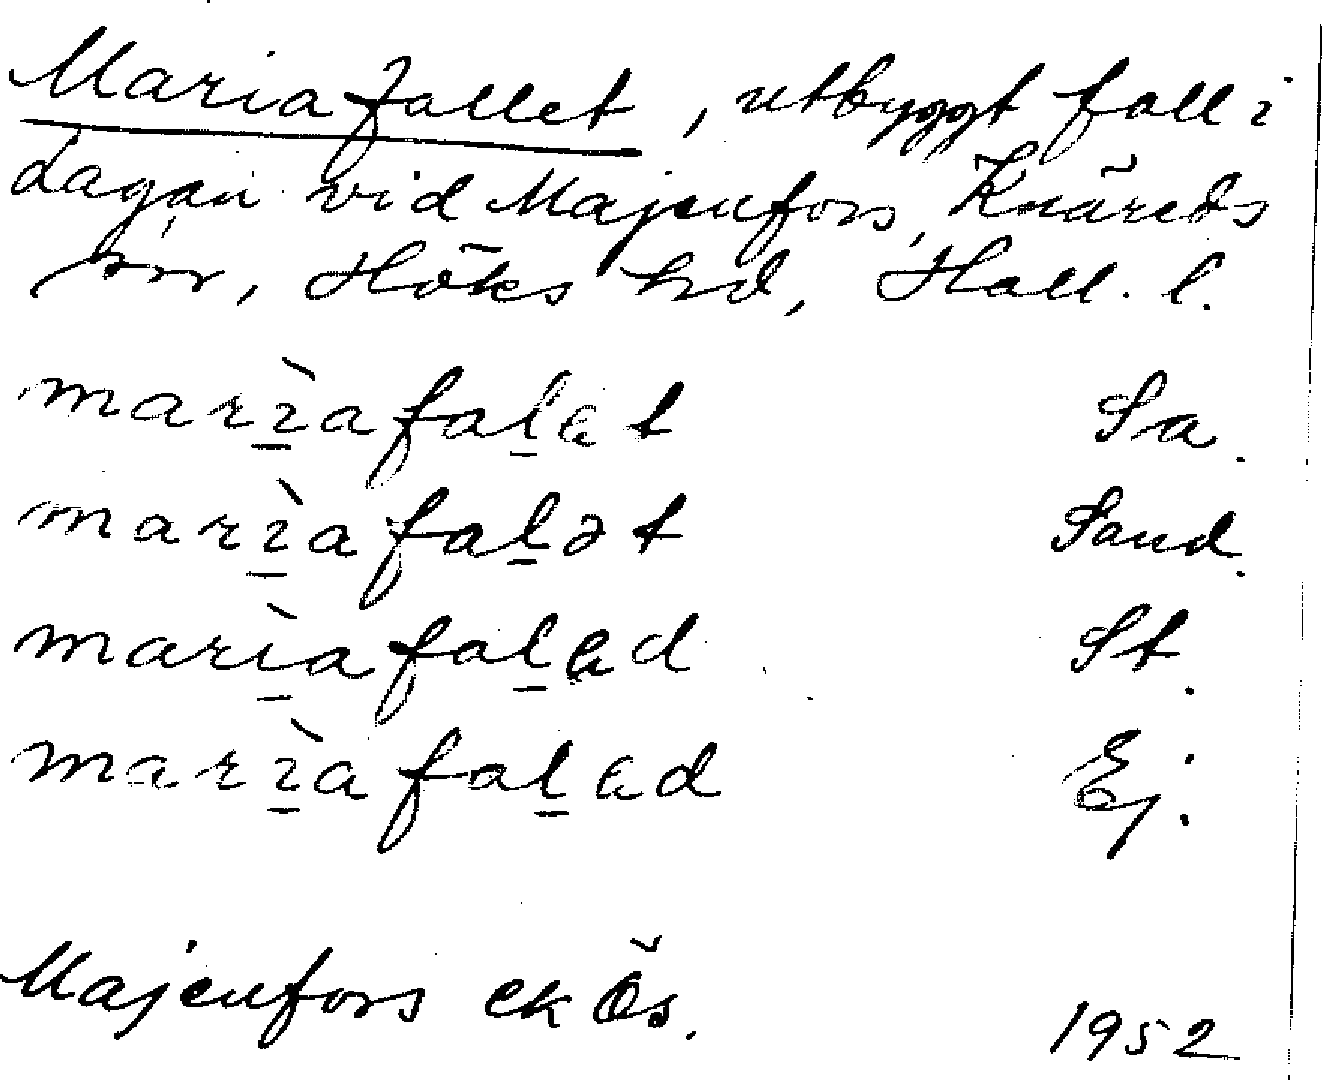 Mariafallet, utbyggt fall i
Lagan vid Majenfors, Knäreds
sn, Höks hd, Hall. l.
marìafalet Sa.
marìafalət Sand.
marìafaled St.
marìafaled Ej.
Majenfors ek Ös.
1952